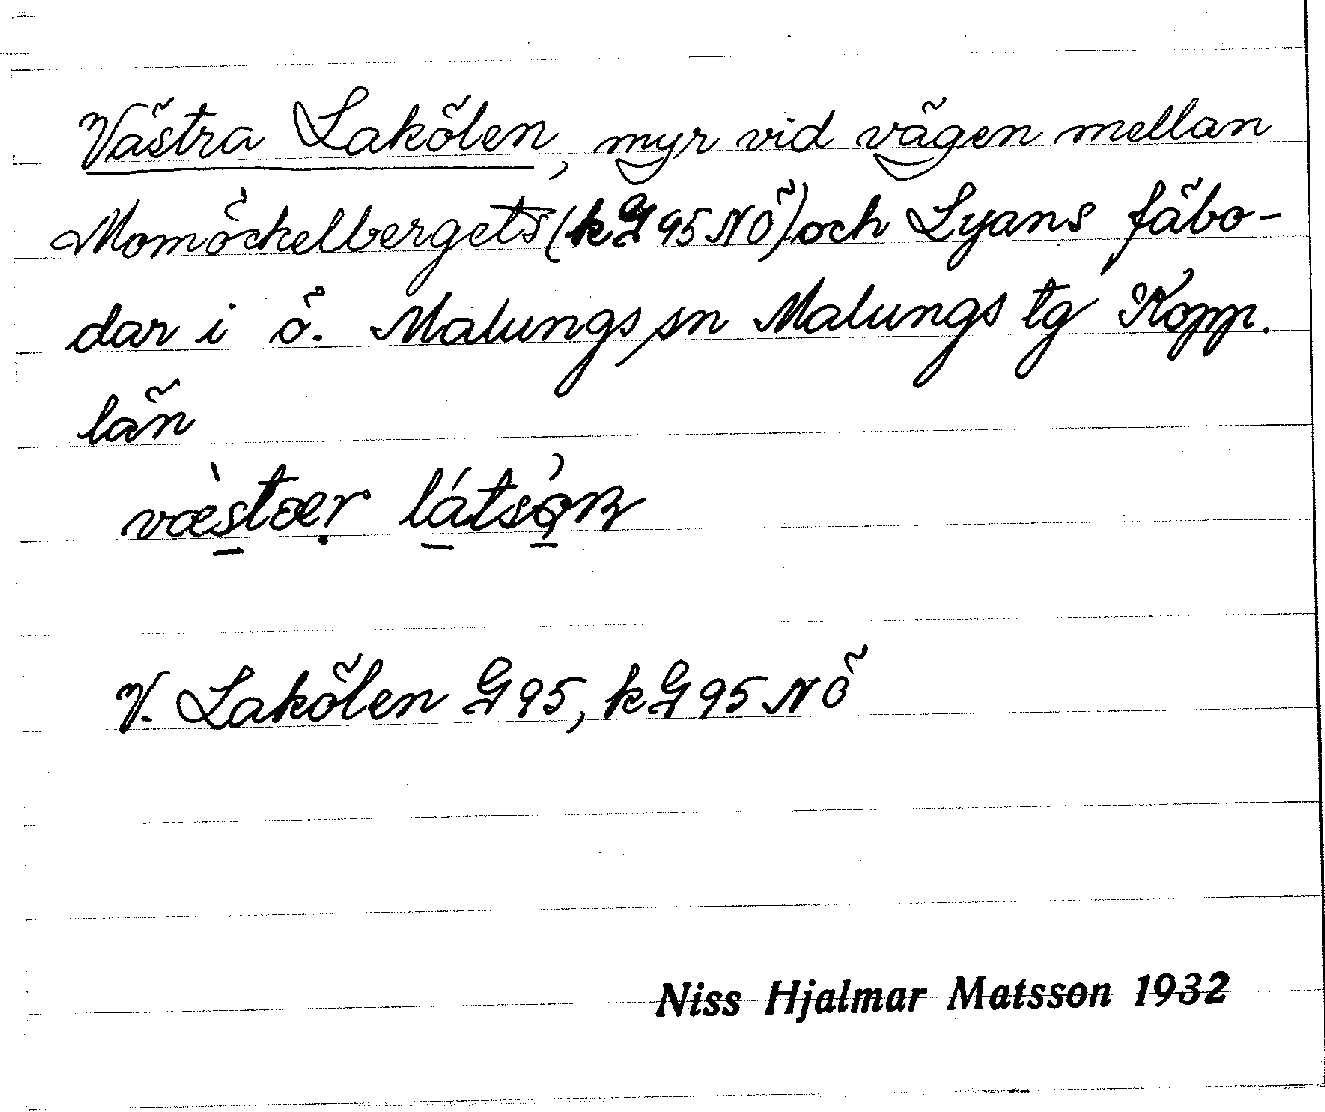 Västra Lakölen, myr vid vägen mellan
Momöckelbergets (kG95NÖ) och Lyans fäbo-
dar i ö. Malungs sn Malungs tg Kopp.
län
væ̀stær látsøn
V. Lakölen G95, kG95NÖ
Niss Hjalmar Matsson 1932